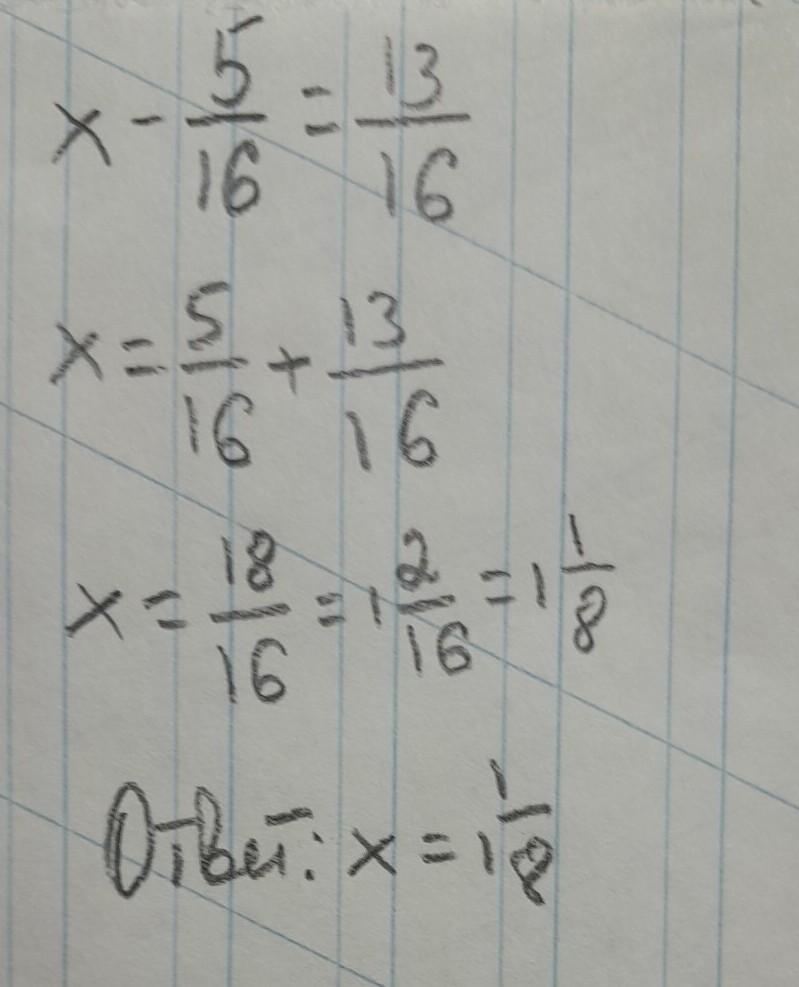 x - 5/16 = 13/16
x = 5/16 + 13/16
x = 18/16 = 1 2/16 = 1 1/8
Ответ: x = 1 1/8